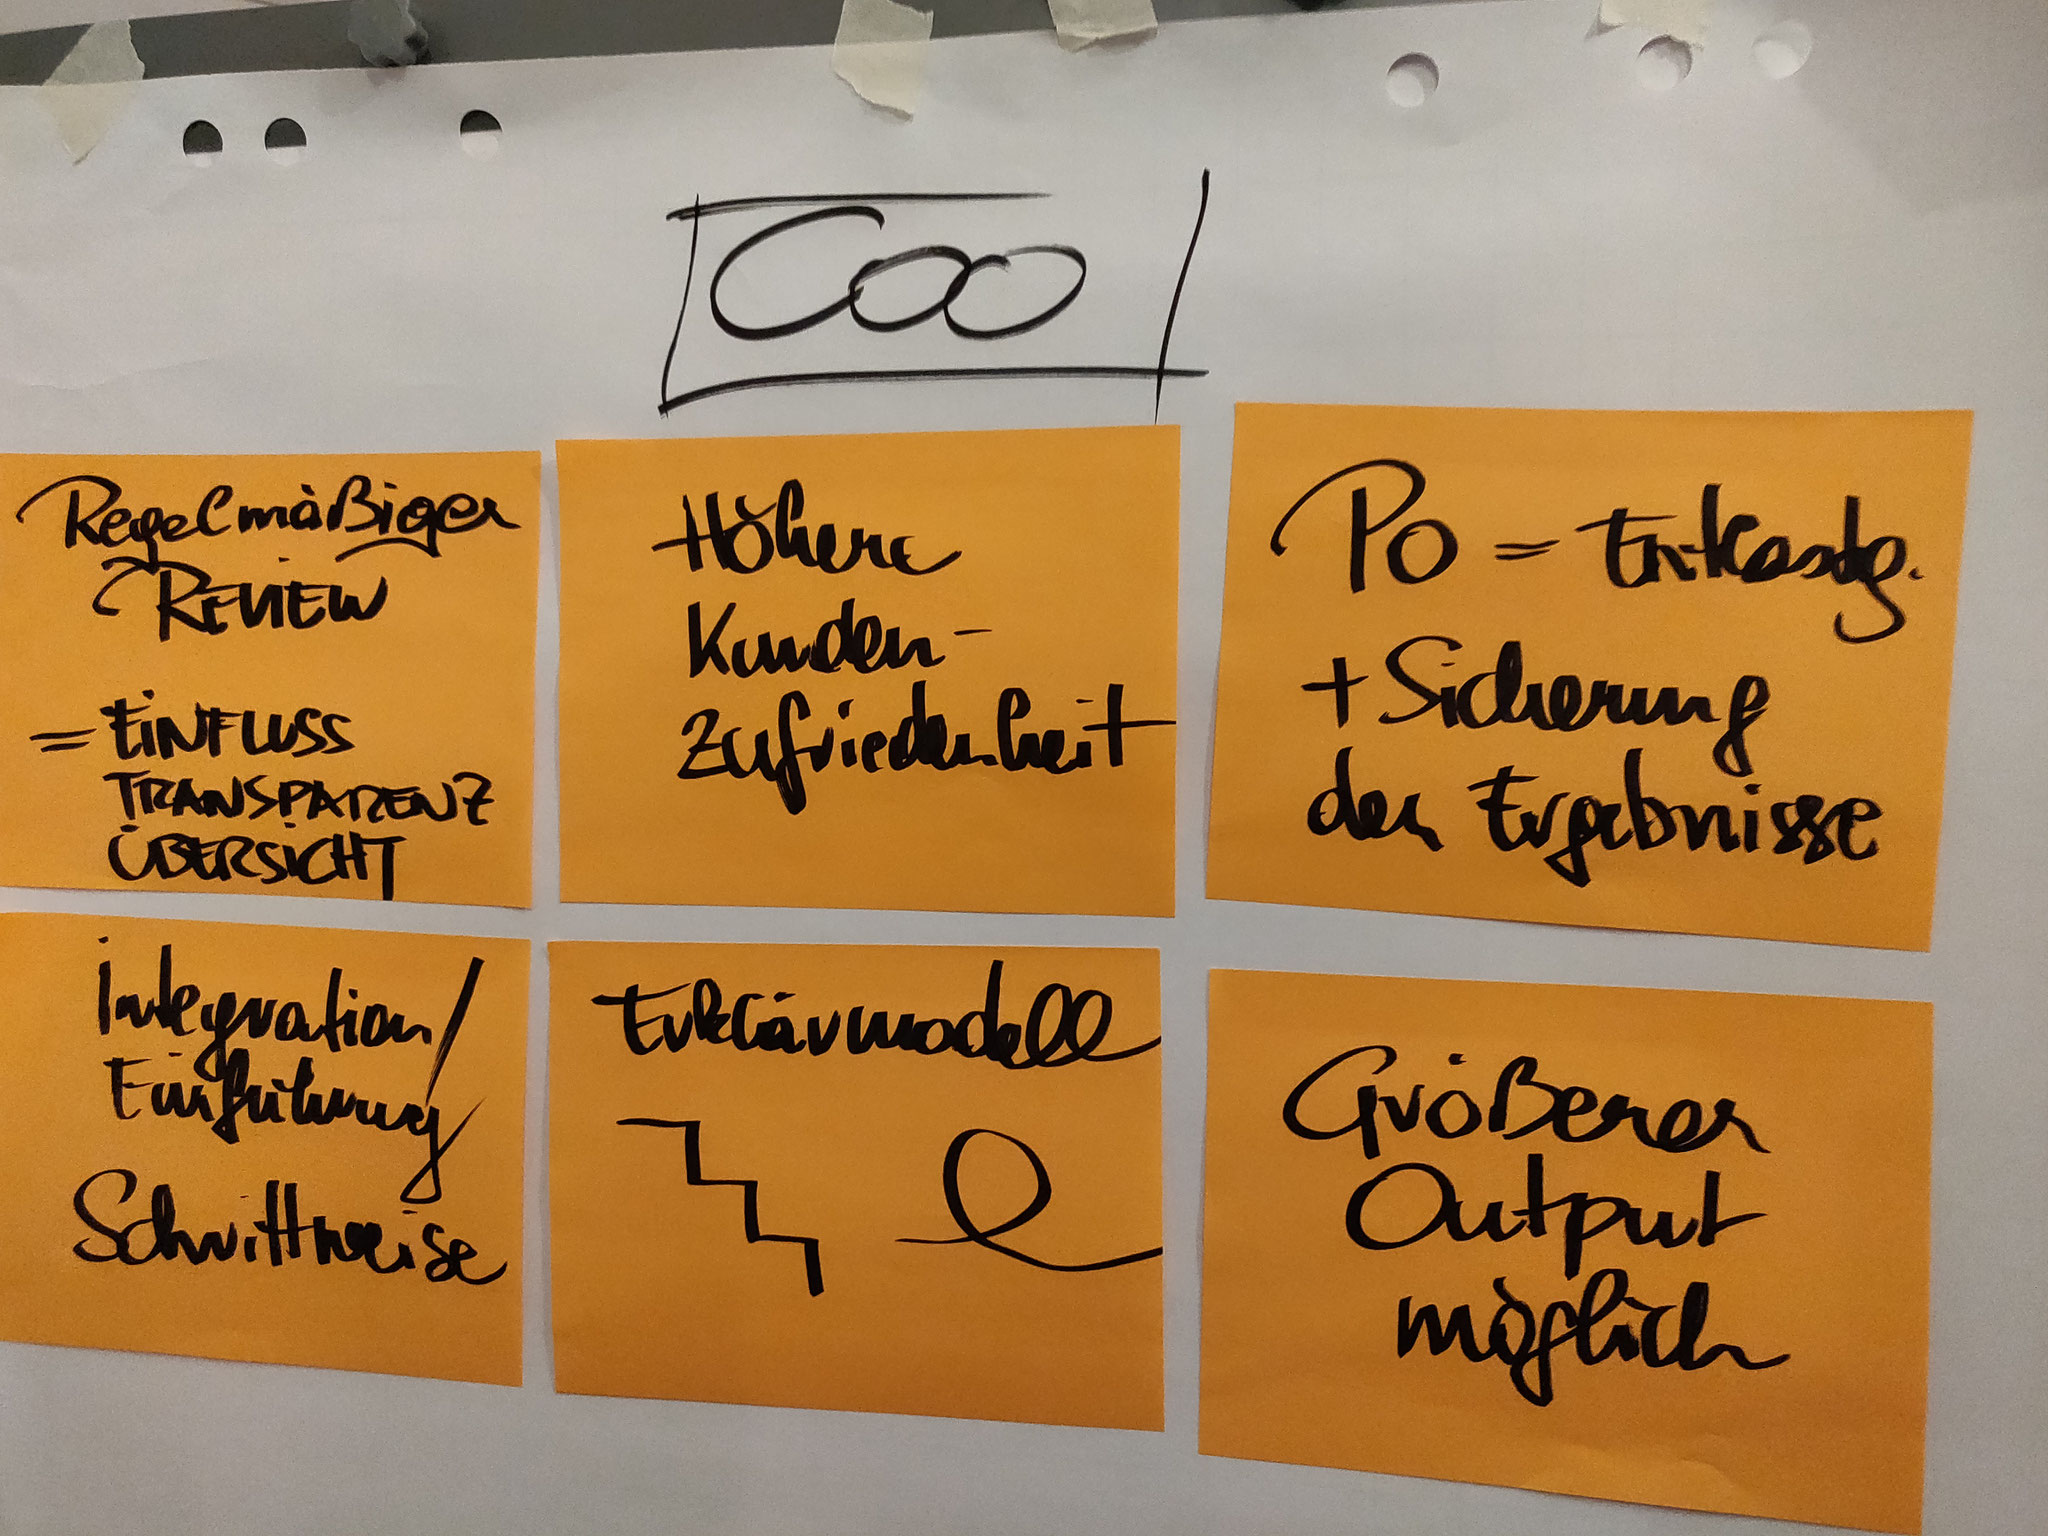 COO
Regelmäßiger
REVIEW
= EINFLUSS
TRANSPARENZ
ÜBERSICHT
Höhere
Kunden-
zufriedenheit
PO = Entlastg.
+ Sicherung
der Ergebnisse
Integration/
Einführung
Schrittweise
Erklärmodell
Größerer
Output
möglich